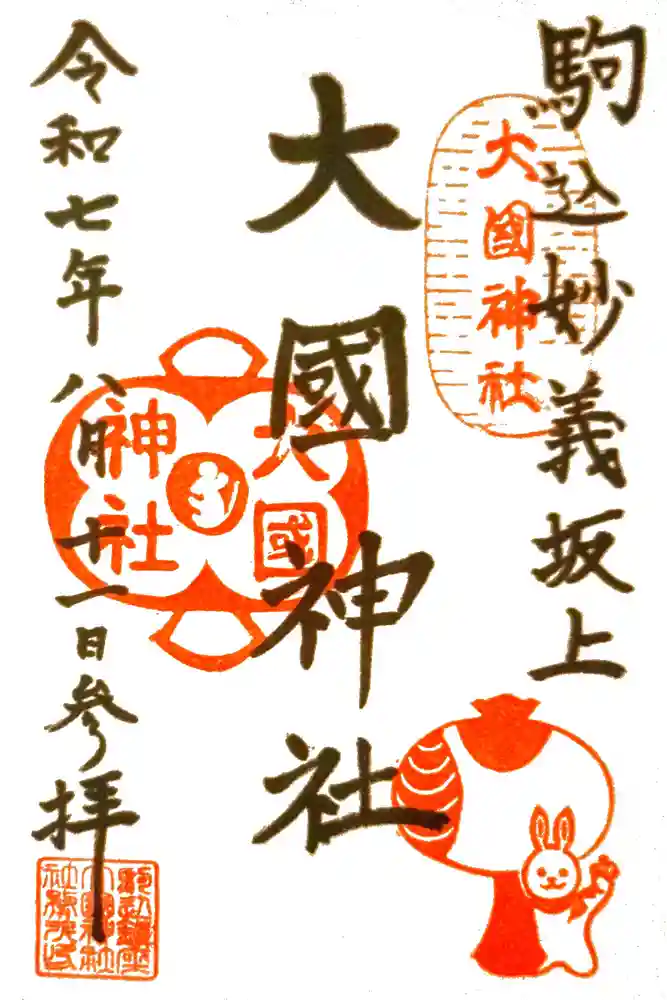 駒込妙義坂上
大國神社
大國神社
大國
神社
令和七年八月十一日参拝